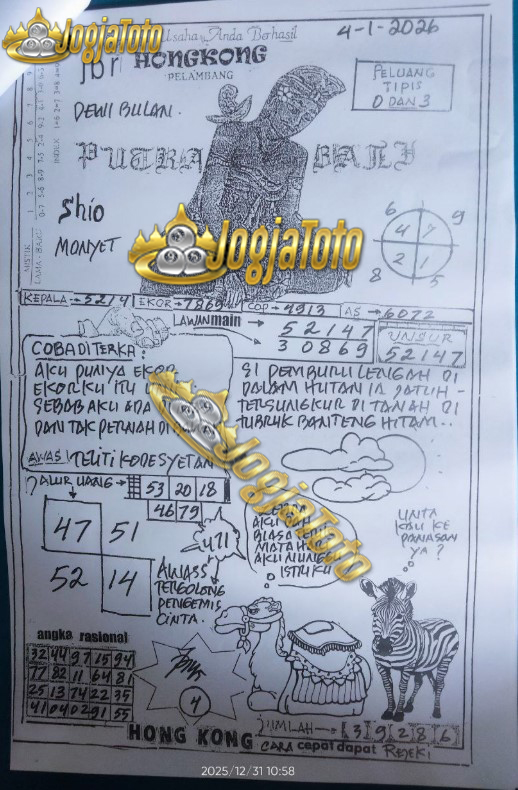 JogjaToto
Usaha Anda Berhasil
4-1-2026
jbr HONGKONG
PELAMBANG
PELUANG
TIPIS
0 DAN 3
DEWI BULAN.
PUTRA BALI
Shio
MONYET
6 9
4 7
2 1
8 5
JogjaToto
KEPALA→5214 EKOR→7869 COP→4913 AS→6072
LAWAN main → 52147
→ 30869
UNSUR
52147
COBA DITERKA:
AKU PUNYA EKOR
EKORKU ITU
SEBAB AKU ADA
DAN TAK PERNAH DI
AWAS! TELITI KODE SYETAN
SI PEMBURU LENGAH DI
DALAM HUTAN IA JATUH -
TERSUNGKUR DI TANAH DI
TUBRUK BANTENG HITAM..
JogjaToto
JALUR UANG→ 53 20 18
46 79
47 51
52 14
471
AWASS
TERGOLONG
PENGEMIS
CINTA.
AKU
BIASA
MATAHA
AKU NUNG
ISTRIKU
UNTA
KAU KE
PANASAN
YA?
angka rasional
32 44 97 15 94
77 82 11 64 81
25 13 74 22 35
41 04 02 91 55
4
HONG KONG
JUMLAH→ 3 9 2 8 6
CARA cepat dapat REJEKI
2025/12/31 10:58